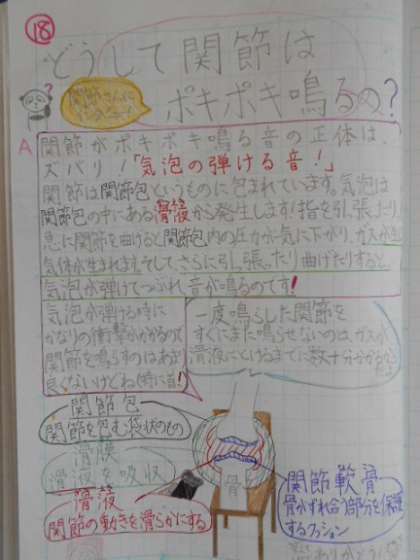 18
どうして関節は
ポキポキ鳴るの?
?
関節さんに
A
関節がポキポキ鳴る音の正体は
ズバリ!「気泡の弾ける音!」
関節は関節包というものに包まれています。気泡は
関節包の中にある滑液から発生します!指を引っ張ったり、
急に関節を曲げると関節包内の圧力が一気に下がり、ガスが
気体が生まれます。そして、さらに引っ張ったり曲げたりすると、
気泡が弾けてつぶれ、音が鳴るのです!
気泡が弾ける時に
かなりの衝撃がかかるので
関節を鳴らすのはあまり
良くないけどね(特に首)!
一度鳴らした関節を
すぐにまた鳴らせないのは、ガスが
滑液にとけるまでに数十分かかるから
関節包
関節を包む袋状のもの
滑膜
滑液を吸収
滑液
関節の動きを滑らかにする
骨
関節軟骨
骨がずれ合う部分を保護
するクッション